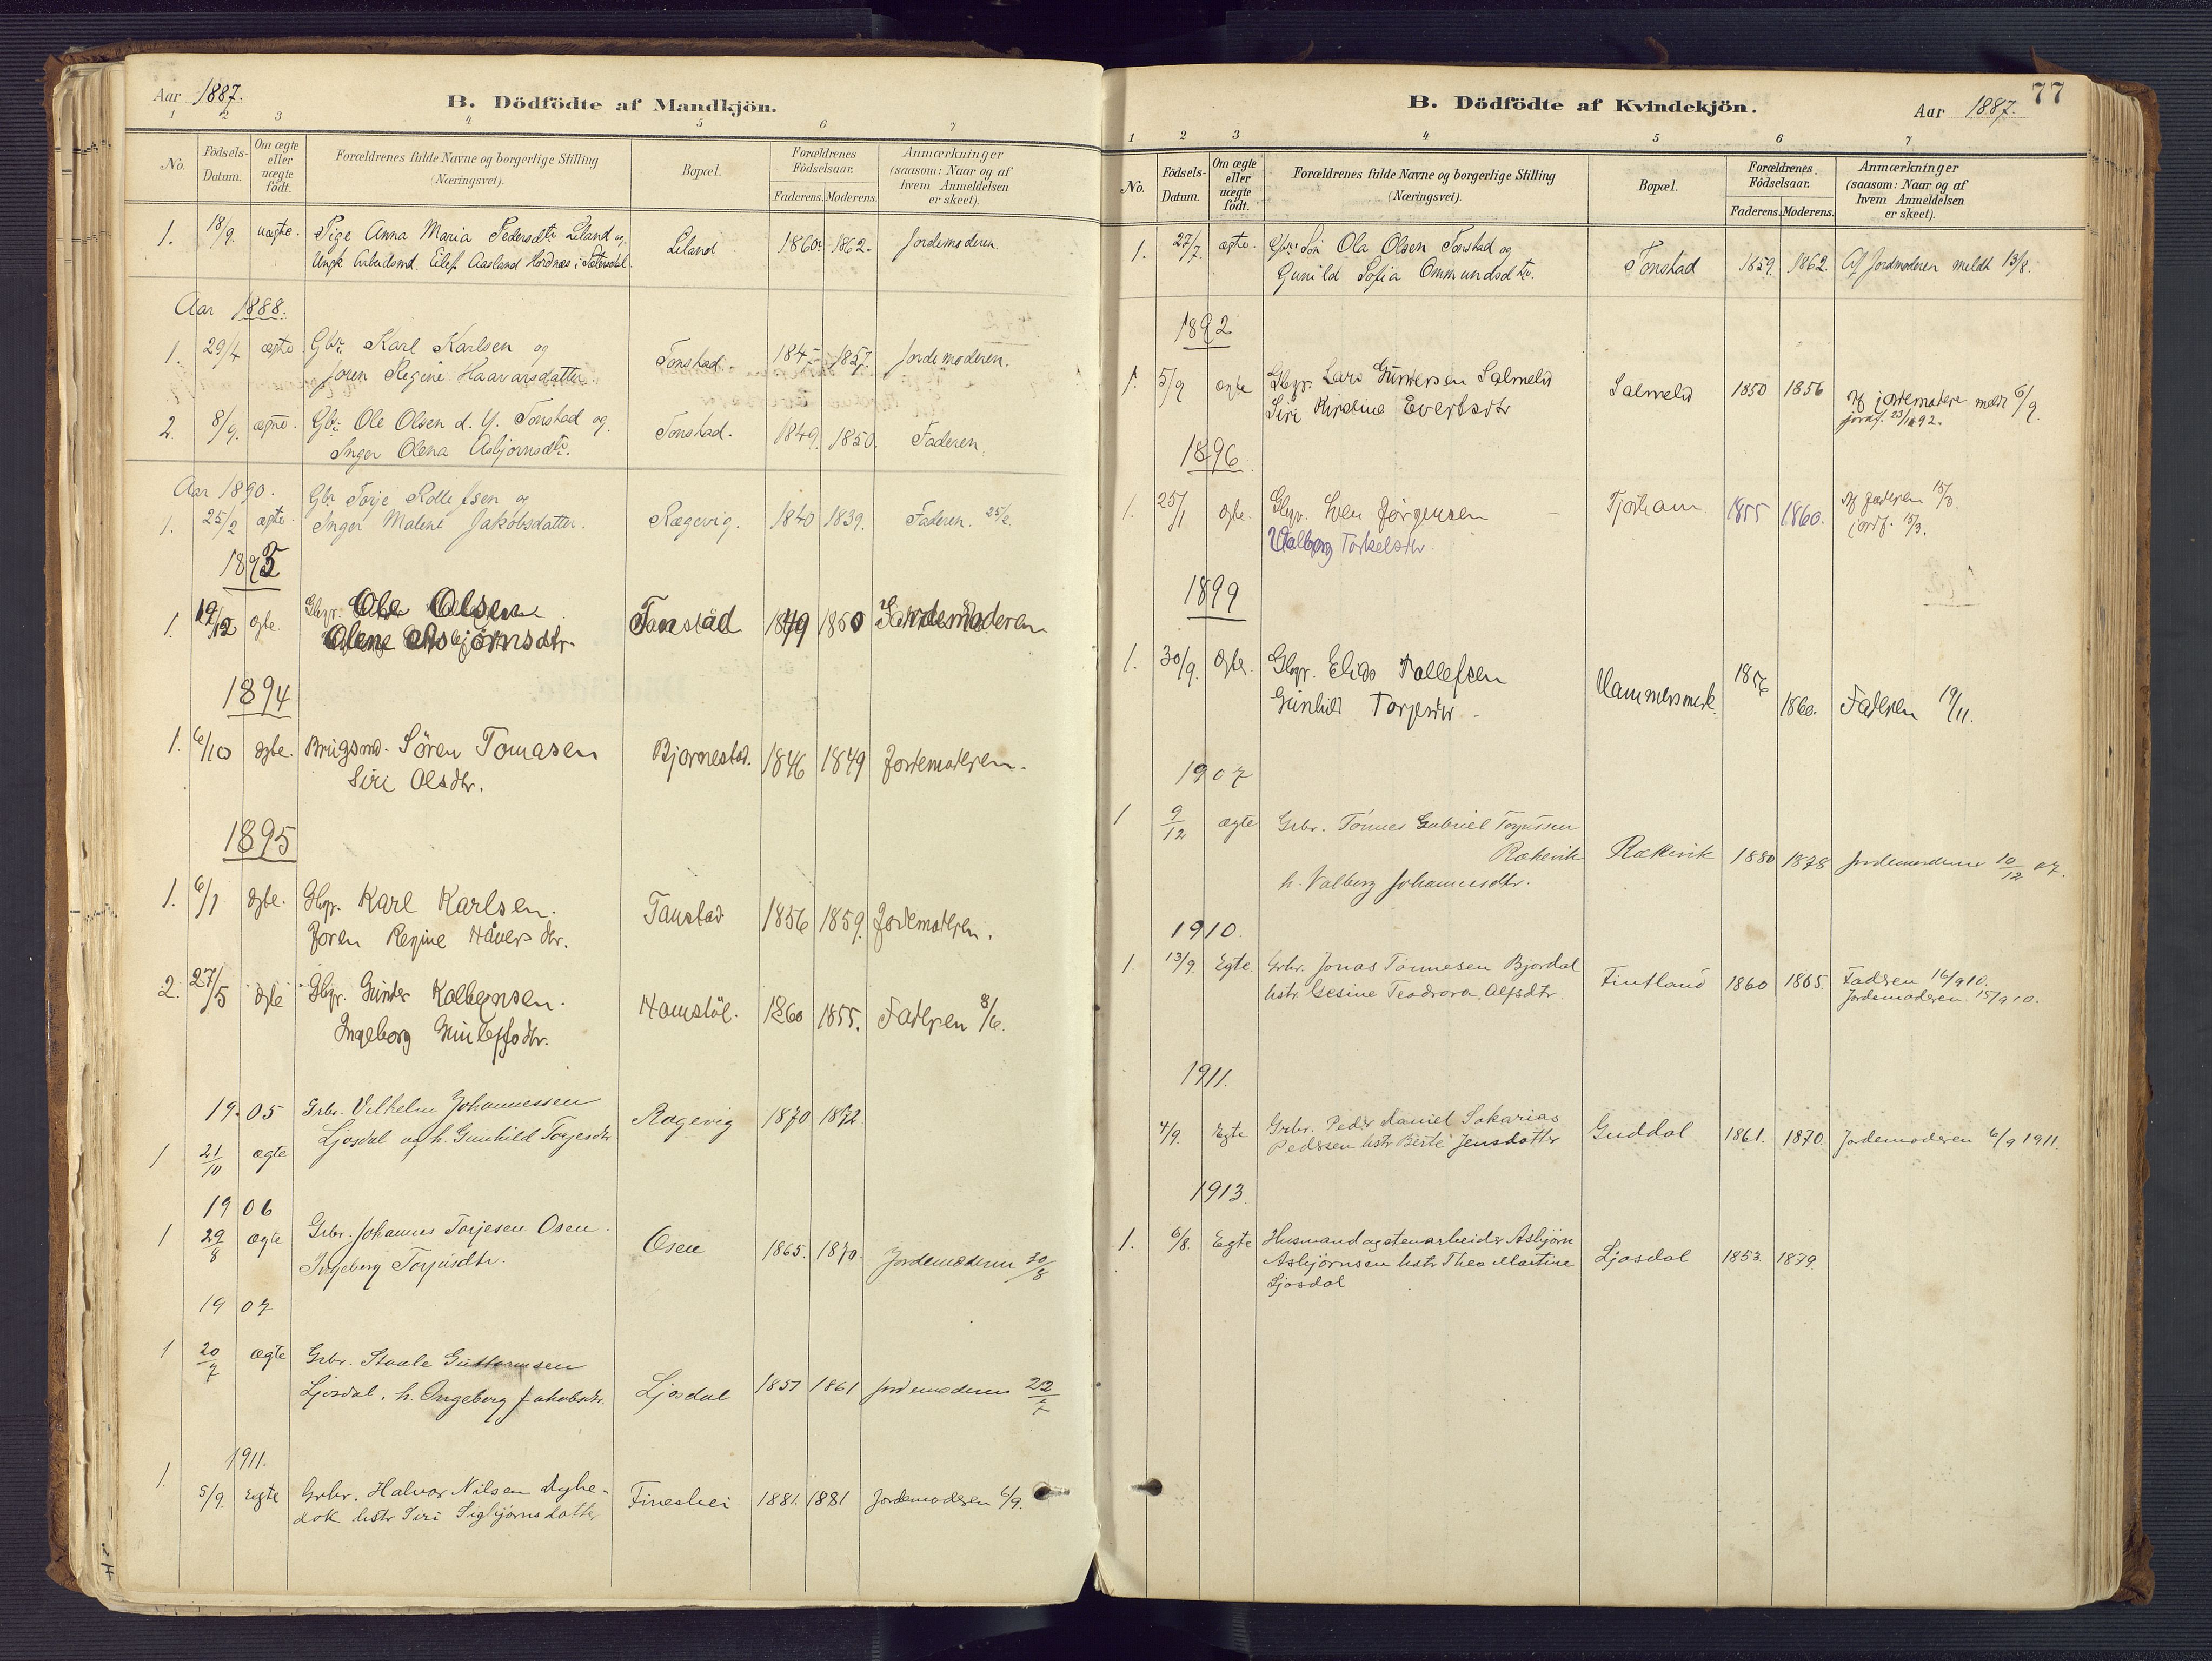 Aar 1887.
B. Dödfödte af Mandkjön.
1 2 3 4 5 6 7
No. Födsels-Datum. Om ægte eller uægte födt. Forældrenes fulde Navne og borgerlige Stilling (Næringsvei). Bopæl. Forældrenes Födselsaar. Faderens. Moderens. Anmærkninger (saasom: Naar og af hvem Anmeldelsen er skeet).
1. 18/9. uægte. Pige Anna Maria Pedersdtr Liland og Liland 1860. 1862. Jordemoderen.
Ungk Arbeidsmd. Eilef Aasland Hordnæs i Sætersdal.
Aar 1888.
1. 29/4 ægte Gbr. Karl Karlsen og Tonstad 1845 1857. Jordemoderen.
Joren Regine Haavarsdatter.
2. 8/9. ægte. Gbr. Ole Olsen d. Y. Tonstad og Tonstad. 1849. 1850. Faderen.
Inger Olena Asbjørnsdtr.
Aar 1890.
1. 25/2 ægte. Gbr Torje Rollefsen og Rægevig. 1840 1839. Faderen. 25/2
Inger Maline Jakobsdatter.
1893
1. 19/12 egte. Gbgr. Ole Olsen Tonstad 1849 1850 Jordemoderen
Olene Asbjørnsdtr
1894
1. 6/10 egte. Brugsmd. Søren Tomasen Bjornestad. 1846 1849 Jordemoderen.
Siri Olsdtr.
1895
1. 6/1 egte. Gbgr. Karl Karlsen. Tonstad 1856 1859. Jordemoderen.
Joren Regine Håversdtr.
2. 27/5 egte Gbgr. Gunder Kolbensen. Homstøl. 1860 1855. Faderen 8/6.
Ingeborg Gunleffsdtr.
1905
1 21/10 ægte Grbr. Vilhelm Johannessen Rægevig 1870 1872
Ljosdal og h. Gunhild Torjesdtr
1906
1 29/8 ægte Grbr. Johannes Torjesen Osen. Osen 1865. 1870. Jordemoderen 30/8
Ingeborg Torjusdtr.
1907
1 20/7 ægte Grbr. Staale Guttormsen Ljosdal 1857 1861 Jordemoderen 22/7
Ljosdal, h. Ingeborg Jakobsdtr.
1911.
1. 5/9. Egte Grbr. Halvor Nilsen Dybe- Fineshei 1881. 1881 Jordemoderen 6/9.
dok hstr Siri Sigbjørnsdatter
77
B. Dödfödte af Kvindekjön.
Aar 1887.
1 2 3 4 5 6 7
No. Födsels-Datum. Om ægte eller uægte födt. Forældrenes fulde Navne og borgerlige Stilling (Næringsvei). Bopæl. Forældrenes Födselsaar. Faderens. Moderens. Anmærkninger (saasom: Naar og af hvem Anmeldelsen er skeet).
1. 27/7. ægte. Søn Ola Olsen Tonstad og Tonstad 1859. 1862. Af Jordmoderen meldt 13/8.
Gunild Sofia Ommundsdtr.
1892
1. 5/9 egte Gbgr. Lars Gundersen Salmelid Salmelid 1850 1856 Af jordemodere meldt 6/9
Siri Kirstine Evertsdtr jordf. 23/10 92.
1896
1. 25/1 egte. Gbgr. Sven Jørgensen Tjorham 1855 1860. Af faderen 15/3.
Valborg Torkelsdtr. jordf. 15/3.
1899
1. 30/9. egte. Gbgr. Elias Tollefsen Hammersmrk. 1856 1860. Faderen 19/11.
Gunhild Torjesdtr
1907
1 9/12 ægte Grbr. Tønnes Gabriel Torjussen
Rækevik Rækevik 1880 1878 Jordemoderen 10/12 07.
h. Valborg Johannesdtr.
1910.
1. 13/9. Egte. Grbr. Jonas Tønnesen Bjordal Fintland 1860 1865. Faderen 16/9 10.
hstr Gesine Teodora Alfsdtr. Jordemoderen 15/9 10.
1911.
4/9. Egte Grbr. Peder Daniel Sakarias Guddal 1861. 1870. Jordemoderen 6/9 1911.
Pedersen hstr Berte Jensdatter
1913.
1. 6/8. Egte Husmand og stenarbeider Asbjørn Ljosdal 1853. 1879.
Asbjørnsen hstr Thea Martine
Ljosdal